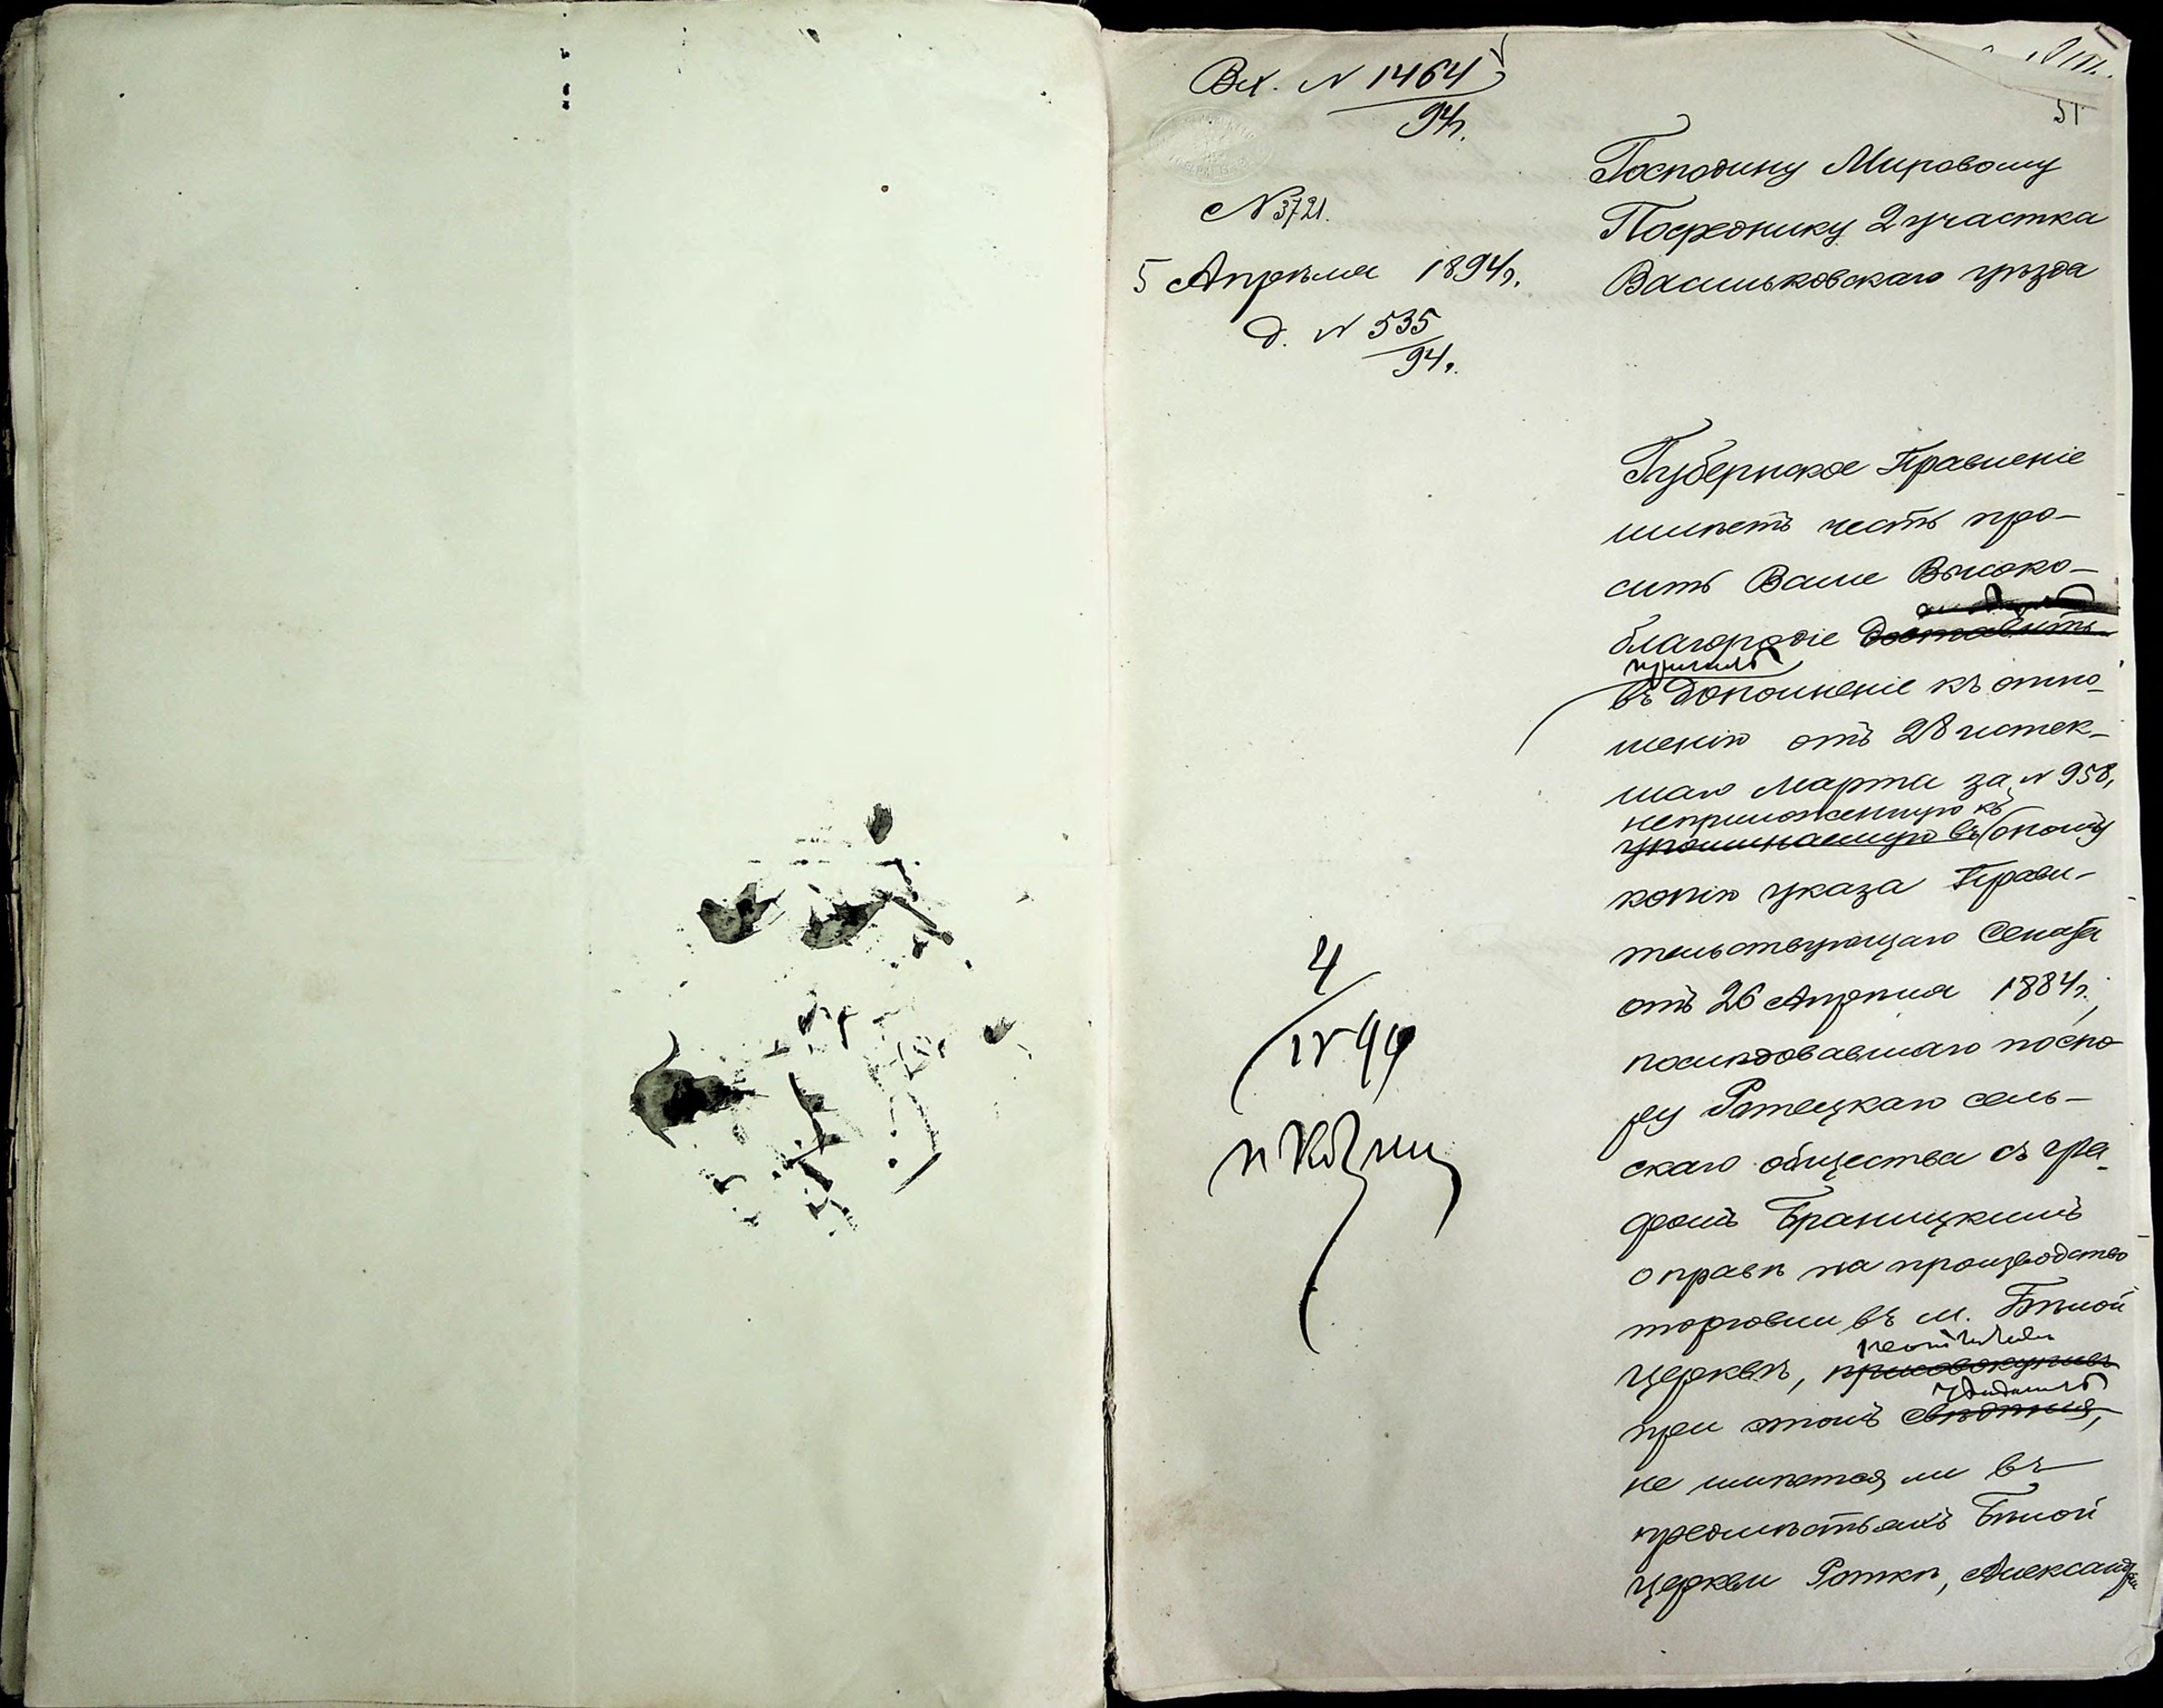 Вх. N 1464
94г.
51
N 3721.
5 Апрѣля 1894г.
д. N 535
94г.
Господину Мировому
Посреднику 2 участка
Васильковскаго уѣзда
Губернское Правленіе
имѣетъ честь про-
сить Ваше Высоко-
благородіе доставить
въ дополненіе къ отно-
шенію отъ 28 истек-
шаго Марта за N 958,
неприложенную къ
упоминаемую въ оному
копію указа Прави-
тельствующаго Сената
отъ 26 Апрѣля 1884г.,
послѣдовавшаго по спо-
ру Ротецкаго сель-
скаго общества съ гра-
фомъ Браницкимъ
о правѣ на производство
торговли въ м. Бѣлой
Церкви, присовокупивъ
при этомъ свѣдѣнія,
не имѣется ли въ
предмѣстьяхъ Бѣлой
Церкви Роткѣ, Александрі
4
IV 94